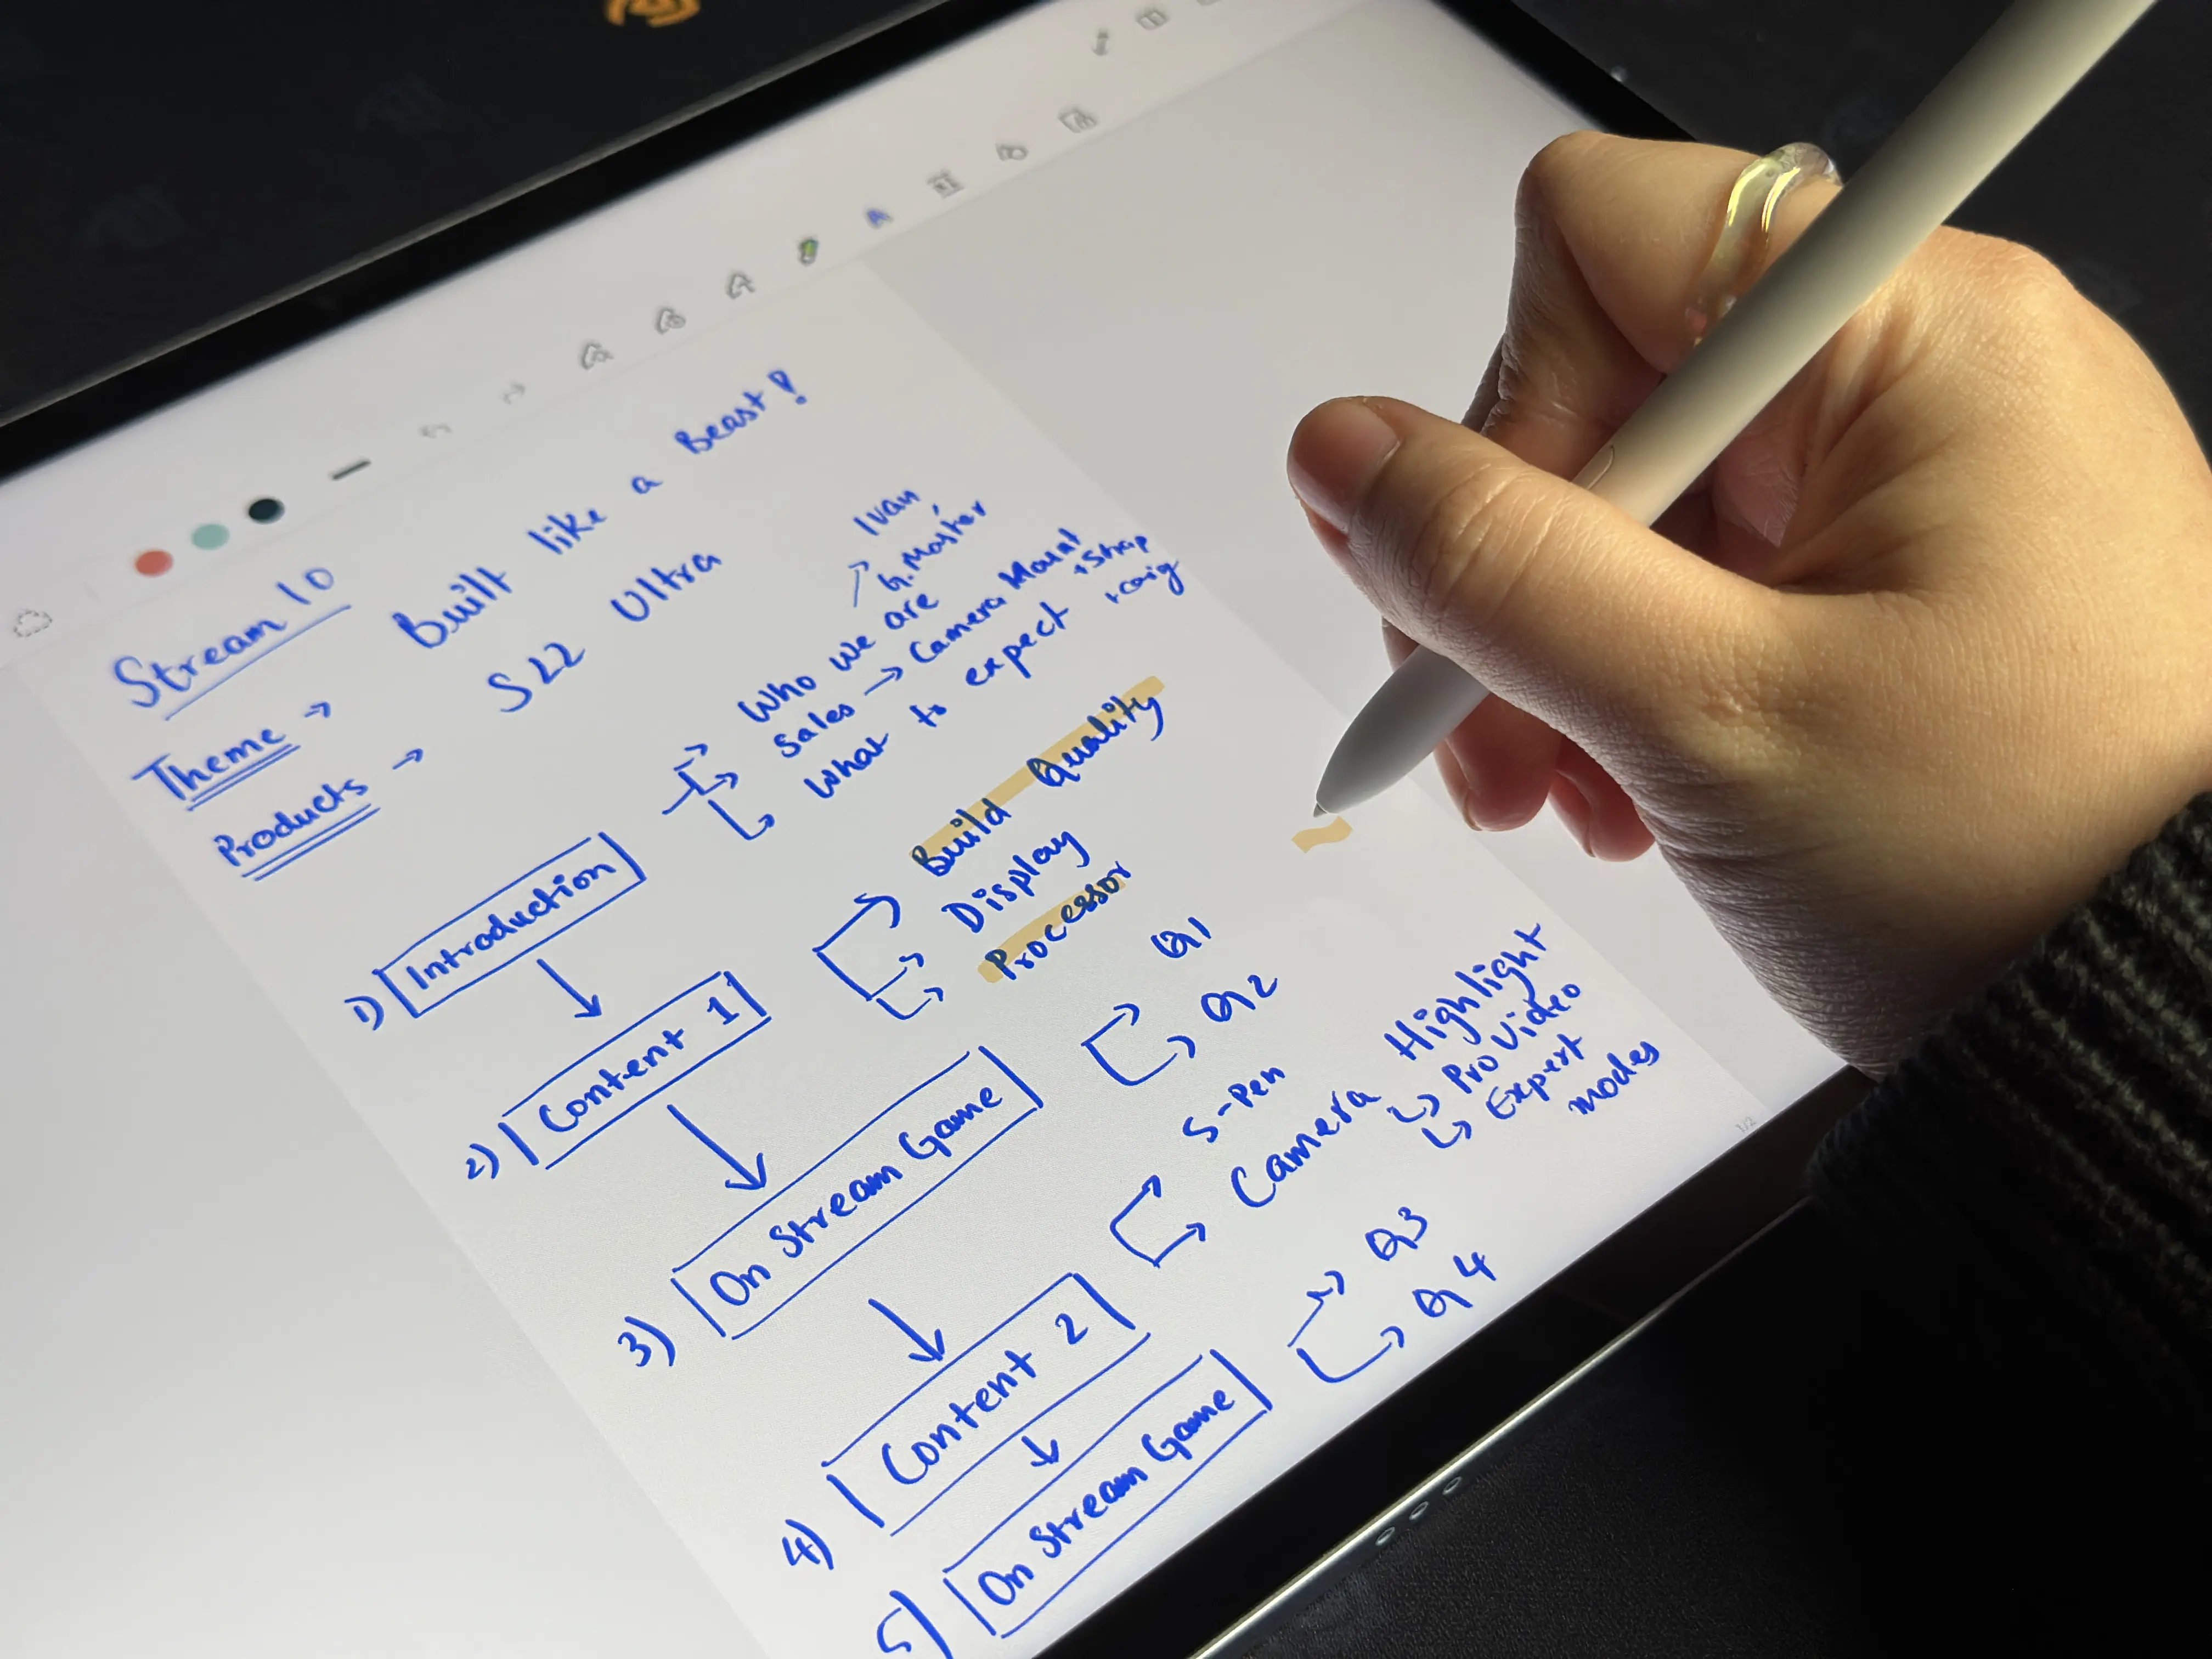 Stream 10
Theme → Built like a Beast!
Products → S22 Ultra
1) Introduction
→ Who we are → Ivan, G. Master
→ Sales → Camera Mount + Strap
→ What to expect
2) Content 1
→ Build Quality
→ Display
→ Processor
3) On Stream Game
→ Q1
→ Q2
4) Content 2
→ S-Pen
→ Camera Highlight
→ Pro Video
→ Expert modes
5) On Stream Game
→ Q3
→ Q4
1/2